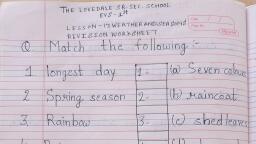 THE LOVEDALE SR. SEC. SCHOOL
EVS - 1st
LESSON - 17 WEATHER AND SEASONS
REVISION WORKSHEET
Q Match the following :-
1 longest day 1- (a) Seven colours
2 Spring season 2- (b) raincoat
3. Rainbow 3- (c) shed leaves